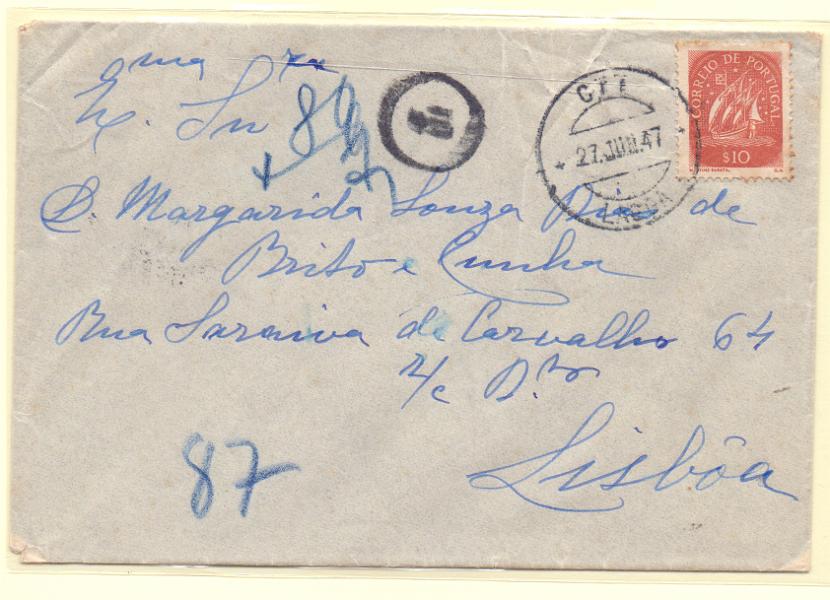 CTT
CORREIO DE PORTUGAL
27.JUN.47
$10
Exma Sra
D. Margarida Souza Dias de
Brito e Cunha
Rua Saraiva de Carvalho 64
r/c D.to
87
Lisbôa